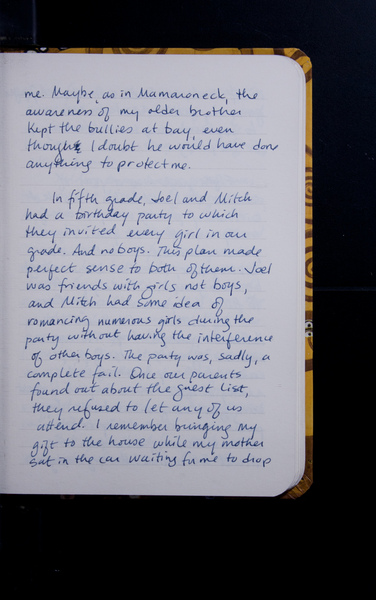 me. Maybe, as in Mamaroneck, the
awareness of my older brother
kept the bullies at bay, even
though I doubt he would have done
anything to protect me.
In fifth grade, Joel and Mitch
had a birthday party to which
they invited every girl in our
grade. And no boys. This plan made
perfect sense to both of them. Joel
was friends with girls not boys,
and Mitch had some idea of
romancing numerous girls during the
party without having the interference
of other boys. The party was, sadly, a
complete fail. Once our parents
found out about the guest list,
they refused to let any of us
attend. I remember bringing my
gift to the house while my mother
sat in the car waiting for me to drop